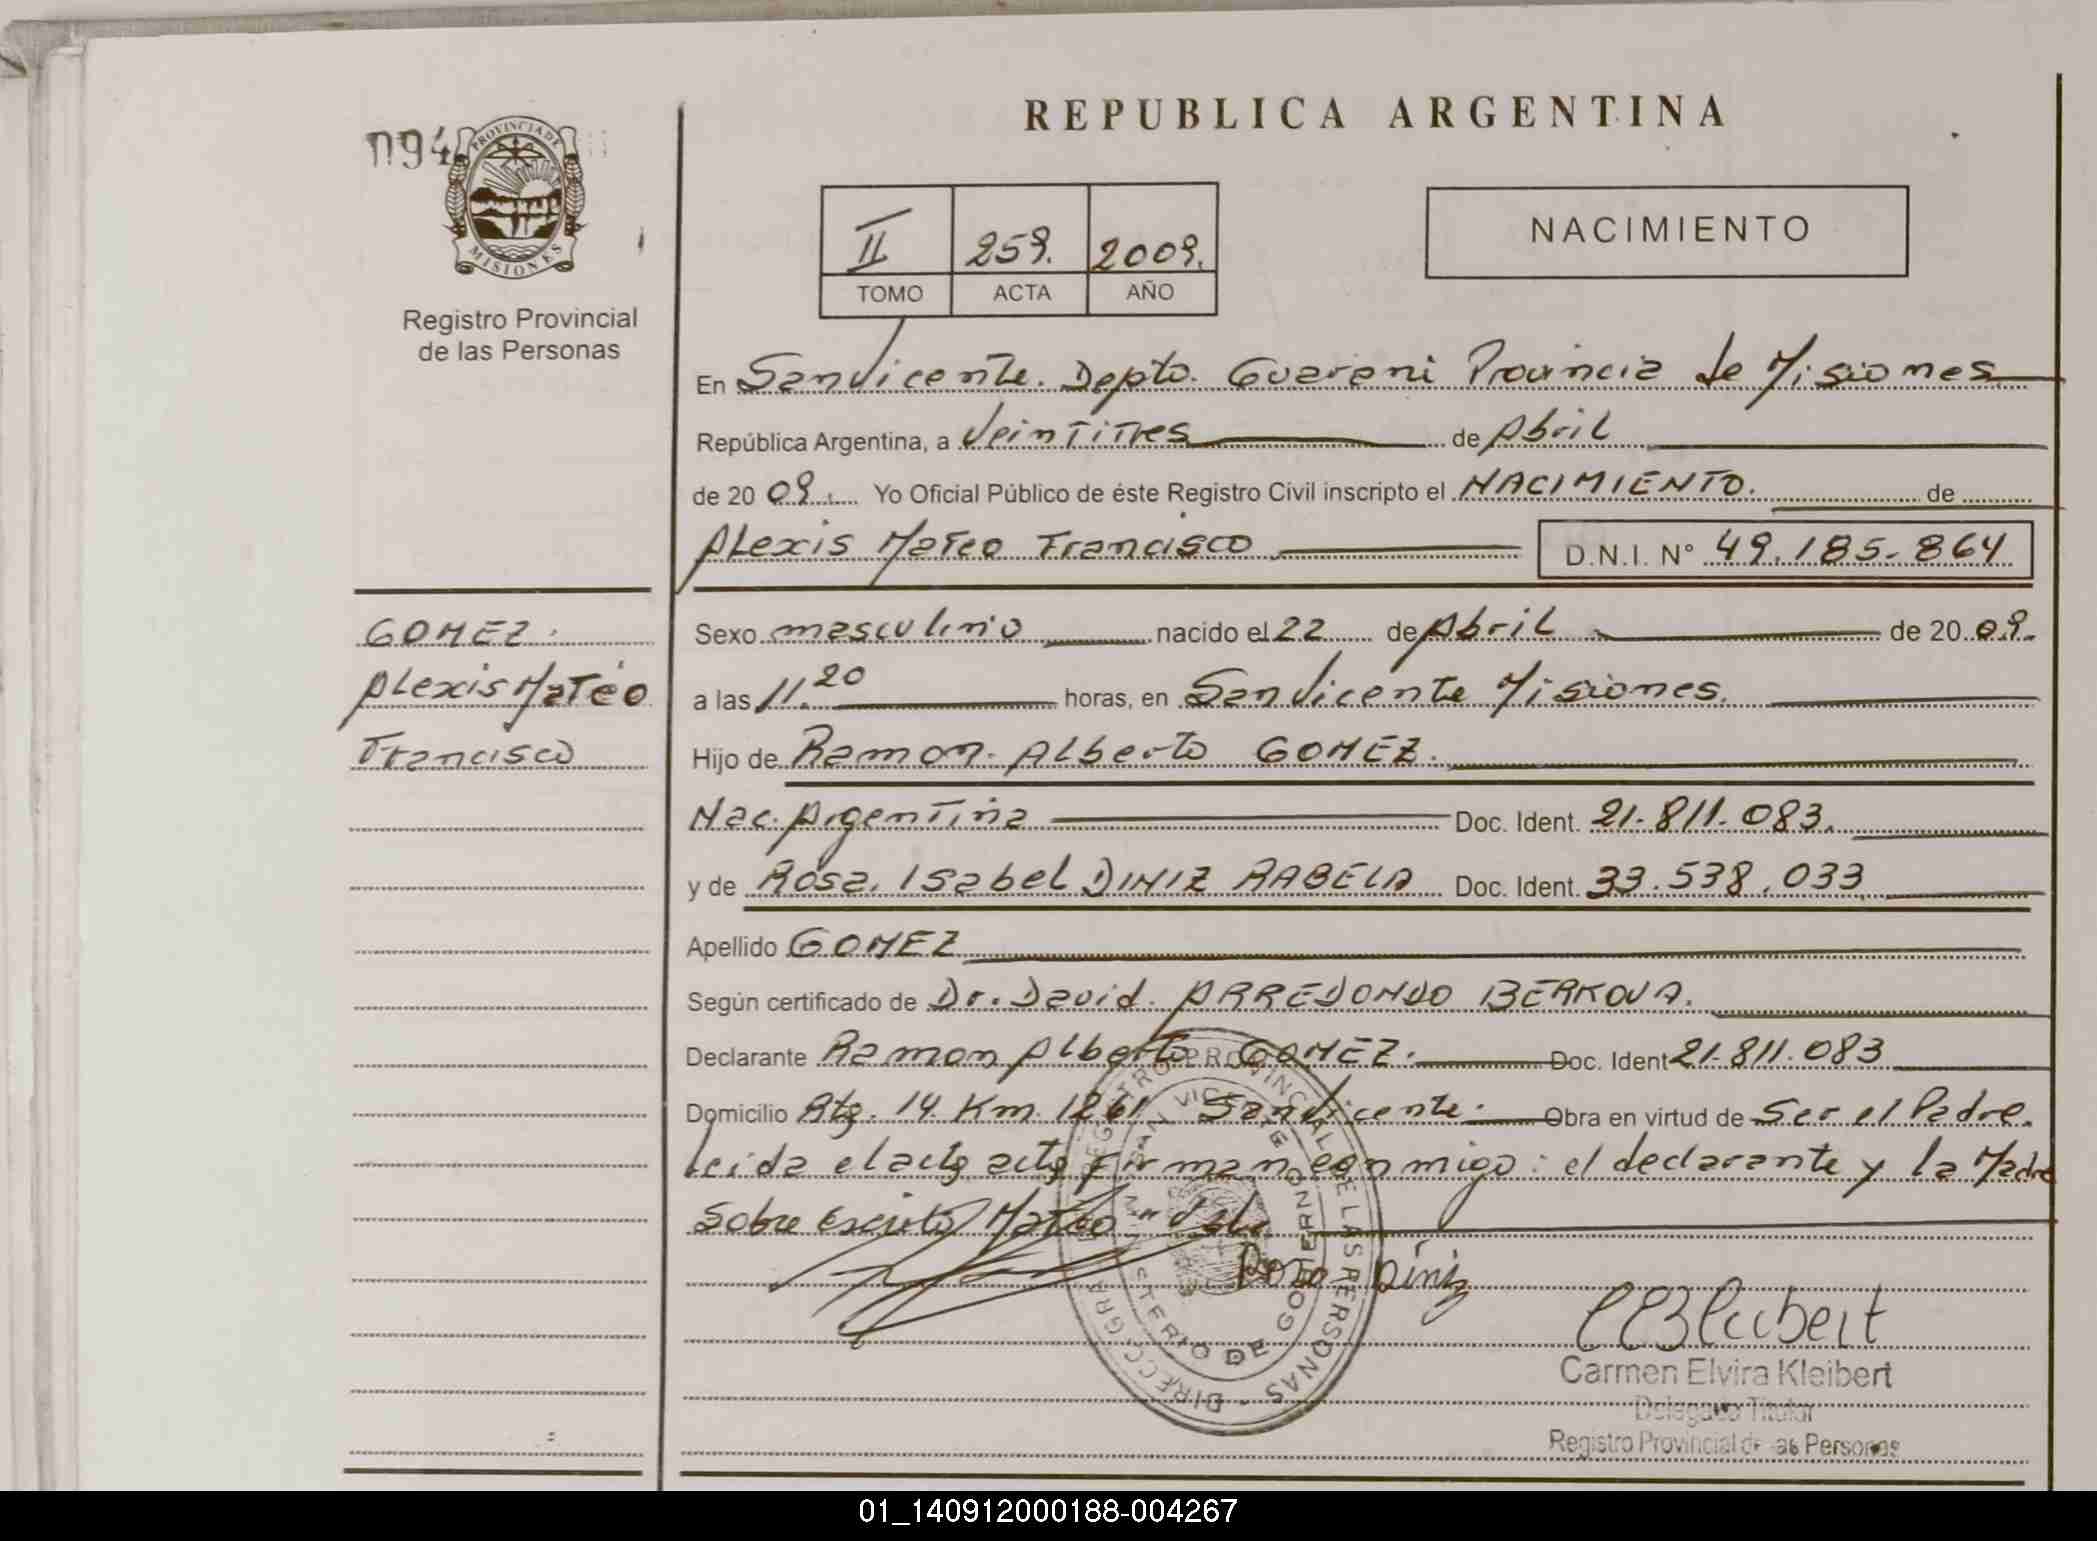 REPUBLICA ARGENTINA
094
PROVINCIA DE
MISIONES
Registro Provincial
de las Personas
II 259. 2009.
TOMO ACTA AÑO
NACIMIENTO
En San Vicente. Depto. Guarani Provincia de Misiones
República Argentina, a Veintitres de Abril
de 20 09. Yo Oficial Público de éste Registro Civil inscripto el NACIMIENTO. de
Alexis Mateo Francisco D.N.I. N° 49.185.864
GOMEZ.
Alexis Mateo
Francisco
Sexo masculino nacido el 22 de Abril de 20 09.
a las 11.20 horas, en San Vicente Misiones.
Hijo de Ramon Alberto GOMEZ.
Nac. Argentina Doc. Ident. 21.811.083.
y de Rosa Isabel DINIZ RABELA Doc. Ident. 33.538.033
Apellido GOMEZ
Según certificado de Dr. David ARREDONDO BERKOVA.
Declarante Ramon Alberto GOMEZ. Doc. Ident 21.811.083
Domicilio Rta. 14 Km. 1261 San Vicente. Obra en virtud de Ser el Padre.
Leida el acta acta firman conmigo: el declarante y la Madre
Sobre Escrito Mateo "Vale
Rosa Diniz
DIRECC. GRAL. REGISTRO PROVINCIAL DE LAS PERSONAS
SAN VICENTE
MINISTERIO DE GOBIERNO
CEKleibert
Carmen Elvira Kleibert
Delegado Titular
Registro Provincial de las Personas
01_140912000188-004267